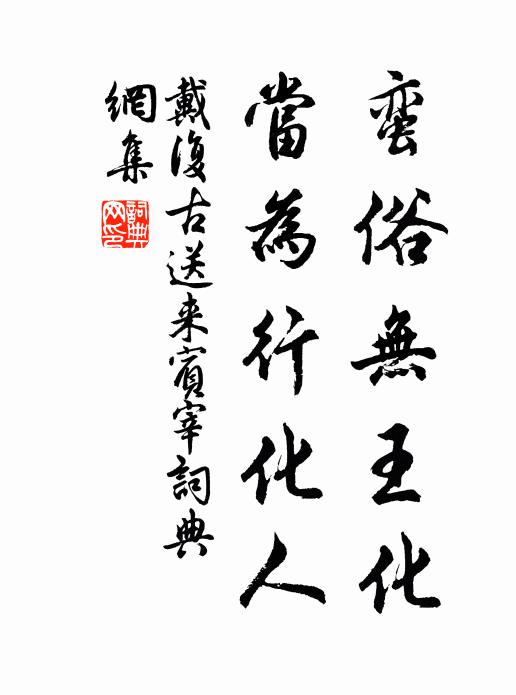 蛮俗無王化
當為行化人
戴復古送来賓宰詞典
網集
詞典網印